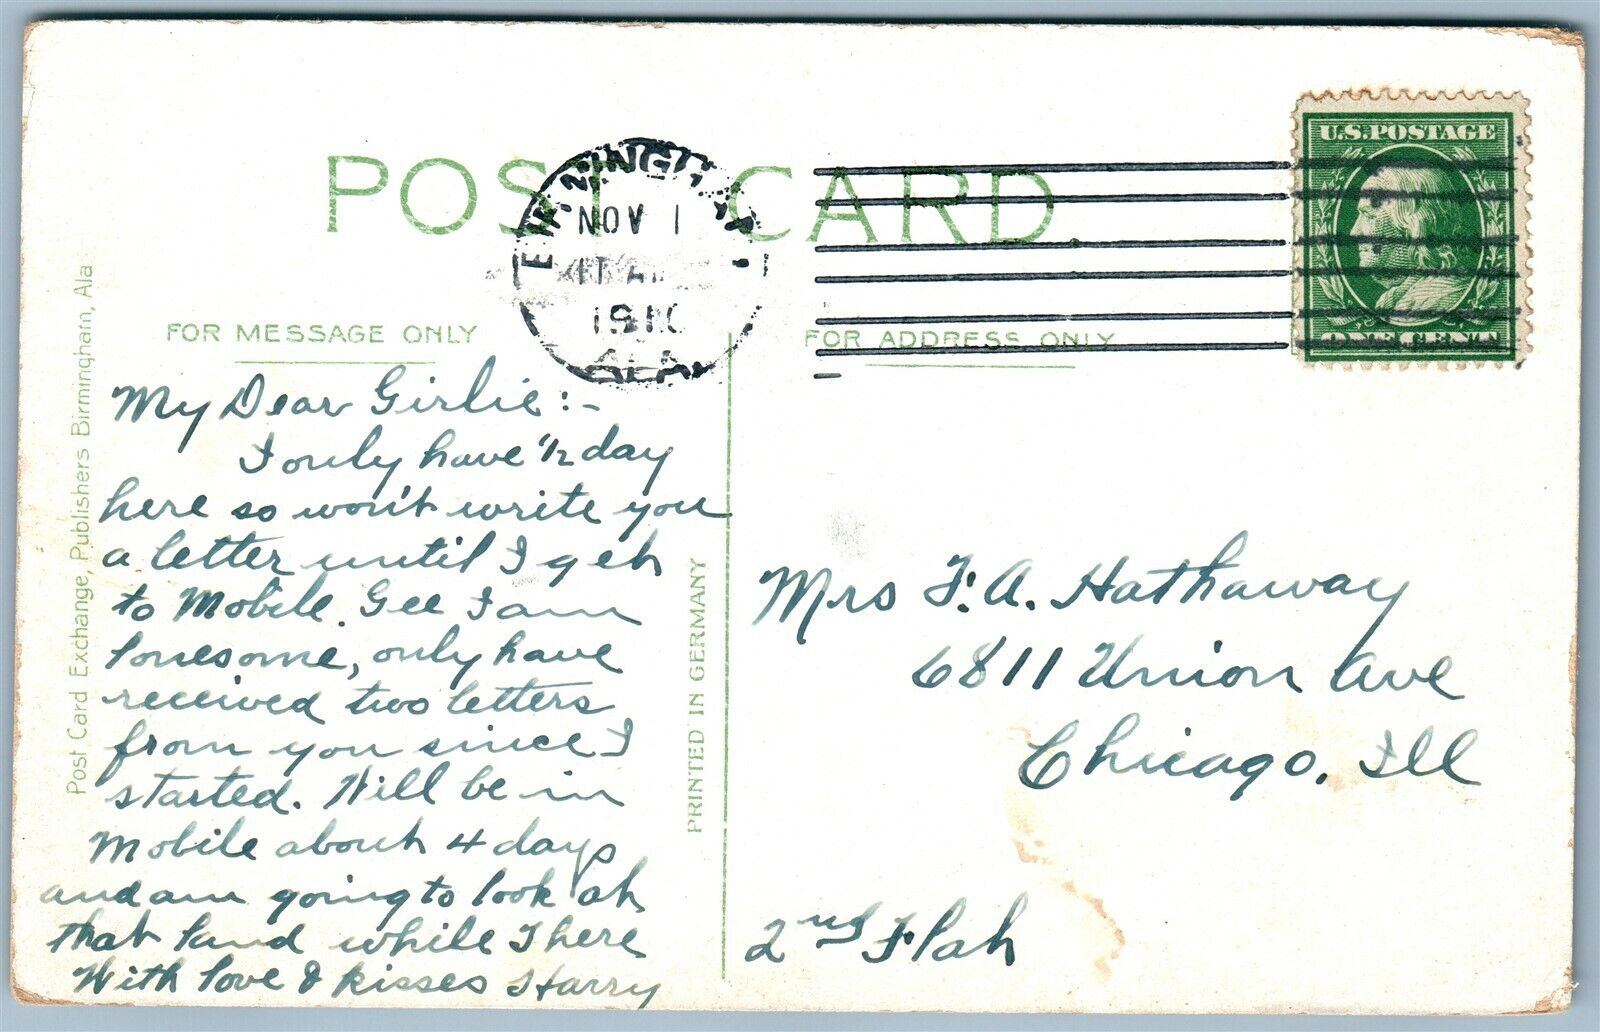 POST CARD.
U.S. POSTAGE
ONE CENT
NOV 1
1910
ALA.
FOR MESSAGE ONLY
FOR ADDRESS ONLY
My Dear Girlie:-
I only have 1/2 day
here so won't write you
a letter until I get
to Mobile. Gee I am
lonesome, only have
received two letters
from you since I
started. Will be in
Mobile about 4 days
and am going to look at
that land while I here
With love & kisses Harry
Mrs F. A. Hathaway
6811 Union Ave
Chicago. Ill
2nd Flat
Post Card Exchange, Publishers Birmingham, Ala
PRINTED IN GERMANY